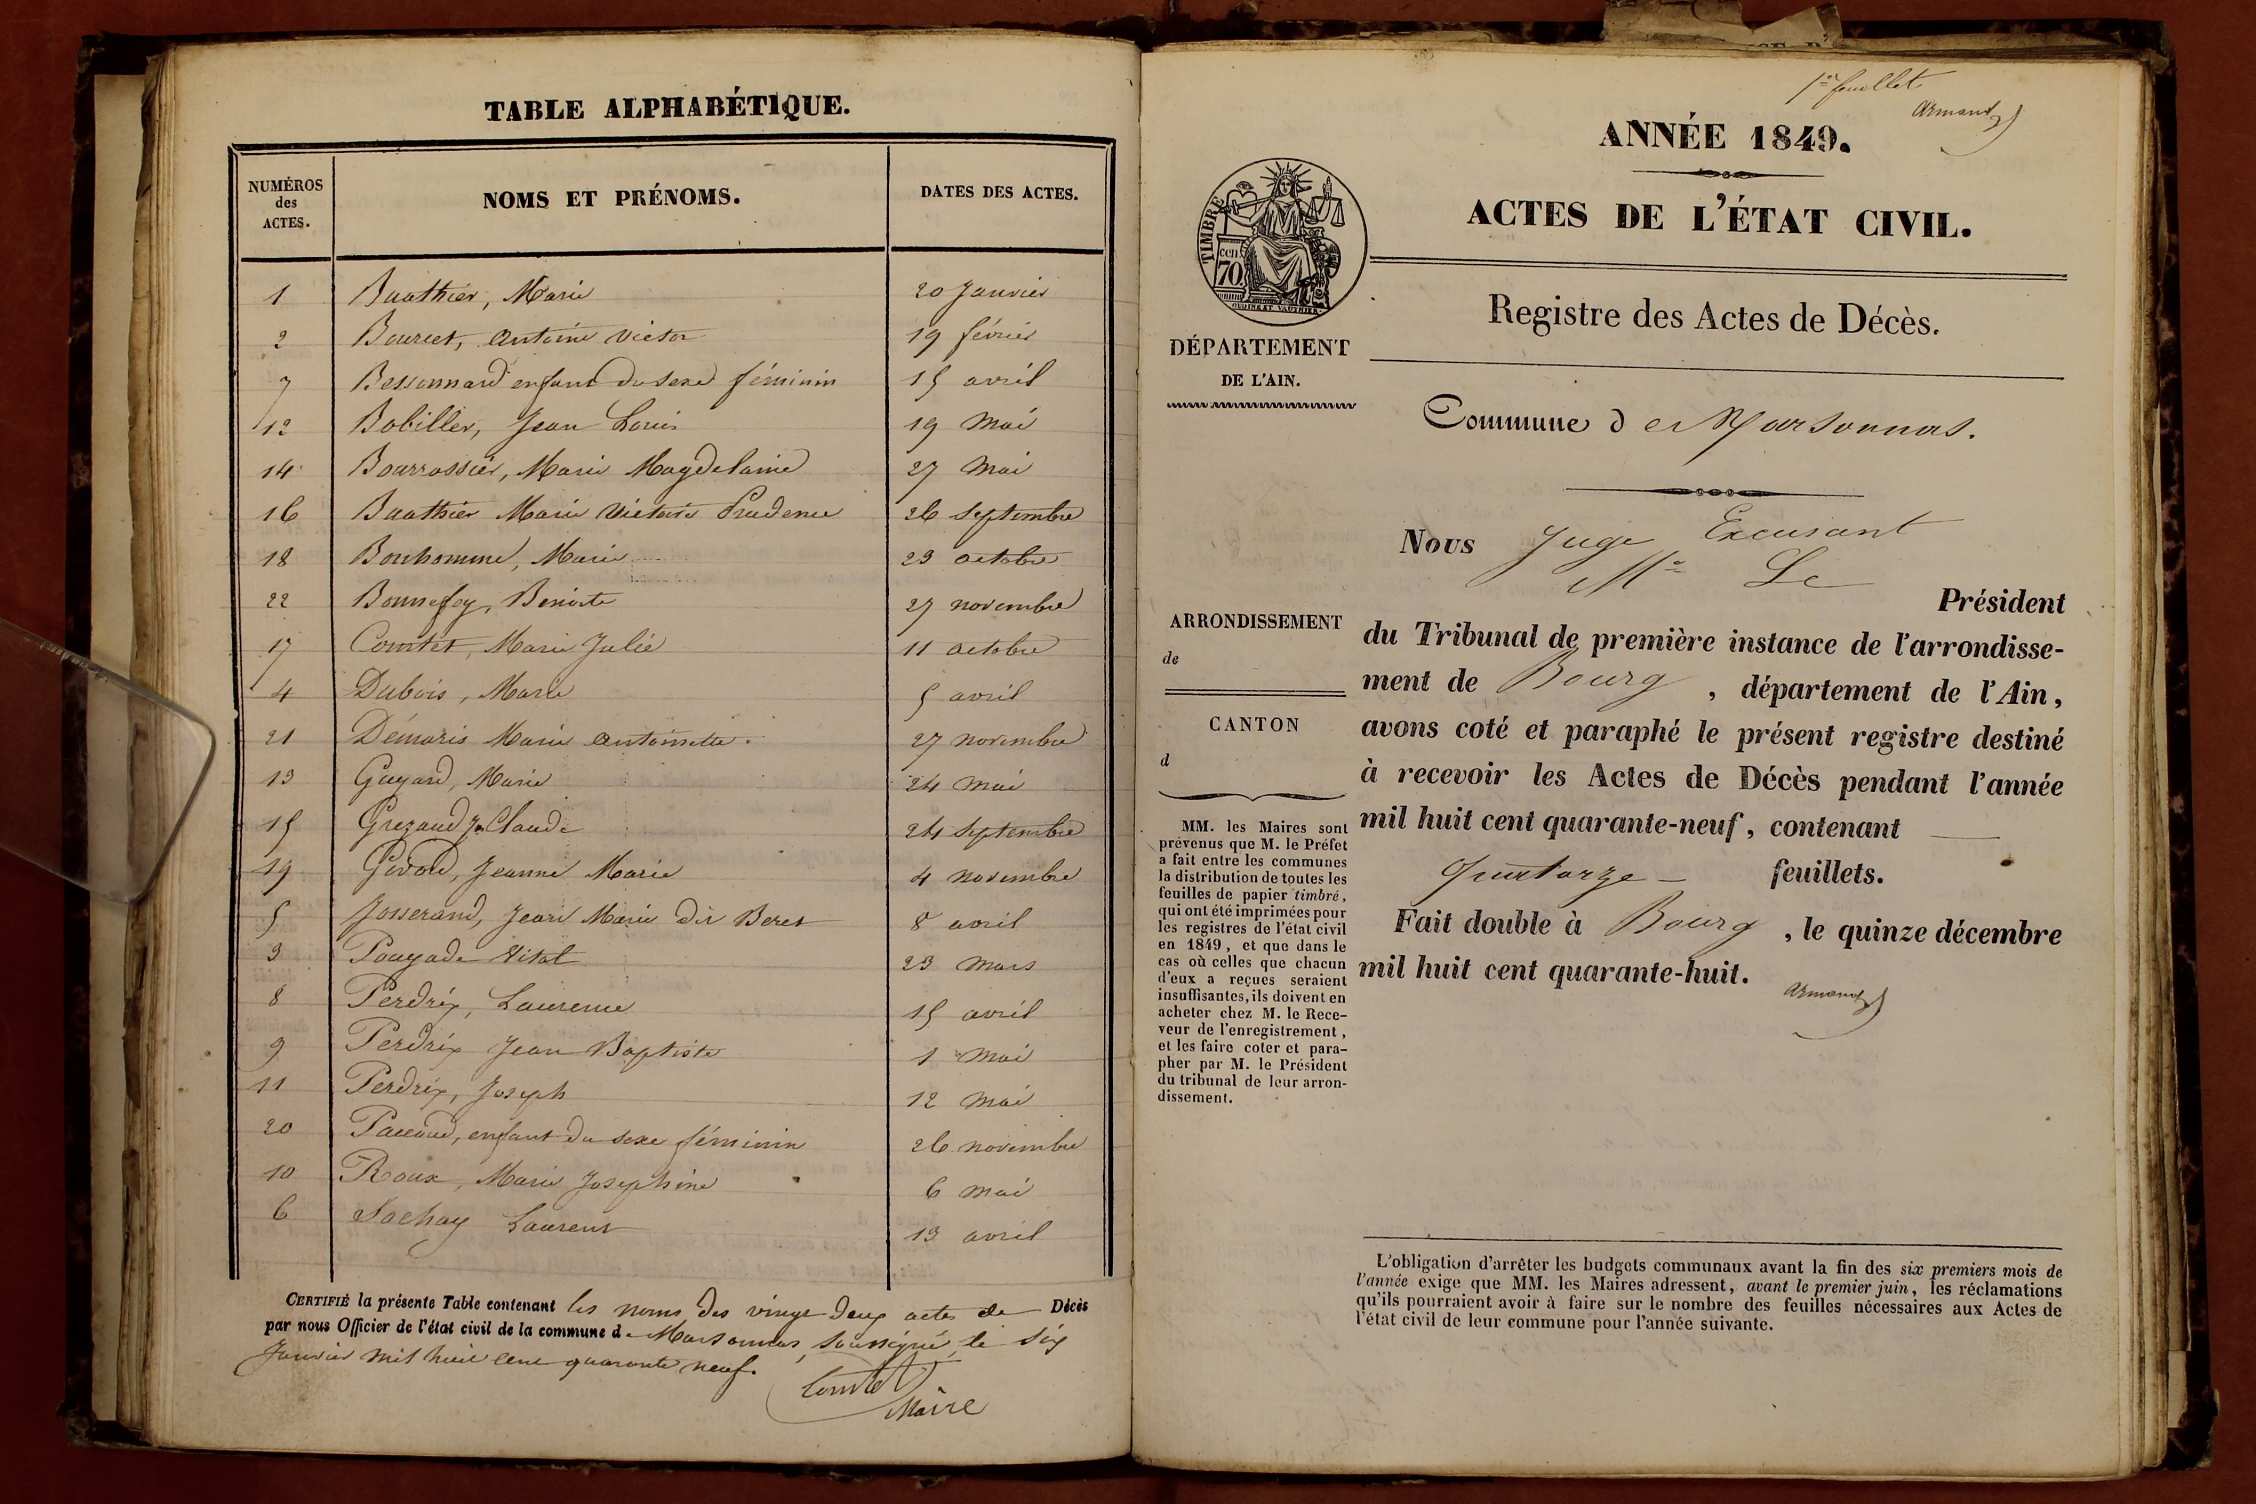 TABLE ALPHABÉTIQUE.
NUMÉROS des ACTES. NOMS ET PRÉNOMS. DATES DES ACTES.
1 Buathier, Marie 20 Janvier
2 Bourcet, Antoine Victor 19 février
7 Bessonnard enfant du sexe féminin 15 avril
12 Bobiller, Jean Louis 19 Mai
14 Bourrassier, Marie Magdelaine 27 Mai
16 Buathier Marie Victoire Prudence 26 Septembre
18 Bonhomme, Marie 23 octobre
22 Bonnefoy, Benoite 27 novembre
17 Comtet, Marie Julie 11 octobre
4 Dubois, Marie 5 avril
21 Démaris Marie Antoinette. 27 novembre
13 Guyard, Marie 24 Mai
15 Grezaud Jn Claude 24 Septembre
19 Jeanne Marie 4 novembre
5 Josserand, Jean Marie dit Beret 8 avril
3 Pougade Vital 23 Mars
8 Perdrix, Laurence 15 avril
9 Perdrix Jean Baptiste 1er Mai
11 Perdrix, Joseph 12 Mai
20 Paccoud, enfant du sexe féminin 26 novembre
10 Roux, Marie Josephine 6 Mai
6 Sochay Laurent 13 avril
CERTIFIÉ la présente Table contenant les noms des vingt deux actes de Décès
par nous Officier de l'état civil de la commune de Marsonnas, soussigné, le six
Janvier mil huit cent quarante neuf.
Comtet
Maire
1er feuillet
Armand
ANNÉE 1849.
ACTES DE L'ÉTAT CIVIL.
TIMBRE
cen. 70.
OUDINÉ ET VAUTHIER.
Registre des Actes de Décès.
DÉPARTEMENT
DE L'AIN.
Commune de Marsonnas.
Nous Juge Excusant
Mr Le
Président
ARRONDISSEMENT
de
CANTON
d
du Tribunal de première instance de l'arrondisse-
ment de Bourg, département de l'Ain,
avons coté et paraphé le présent registre destiné
à recevoir les Actes de Décès pendant l'année
mil huit cent quarante-neuf, contenant
quatorze feuillets.
Fait double à Bourg, le quinze décembre
mil huit cent quarante-huit.
Armand
MM. les Maires sont
prévenus que M. le Préfet
a fait entre les communes
la distribution de toutes les
feuilles de papier timbré,
qui ont été imprimées pour
les registres de l'état civil
en 1849, et que dans le
cas où celles que chacun
d'eux a reçues seraient
insuffisantes, ils doivent en
acheter chez M. le Rece-
veur de l'enregistrement,
et les faire coter et para-
pher par M. le Président
du tribunal de leur arron-
dissement.
L'obligation d'arrêter les budgets communaux avant la fin des six premiers mois de
l'année exige que MM. les Maires adressent, avant le premier juin, les réclamations
qu'ils pourraient avoir à faire sur le nombre des feuilles nécessaires aux Actes de
l'état civil de leur commune pour l'année suivante.